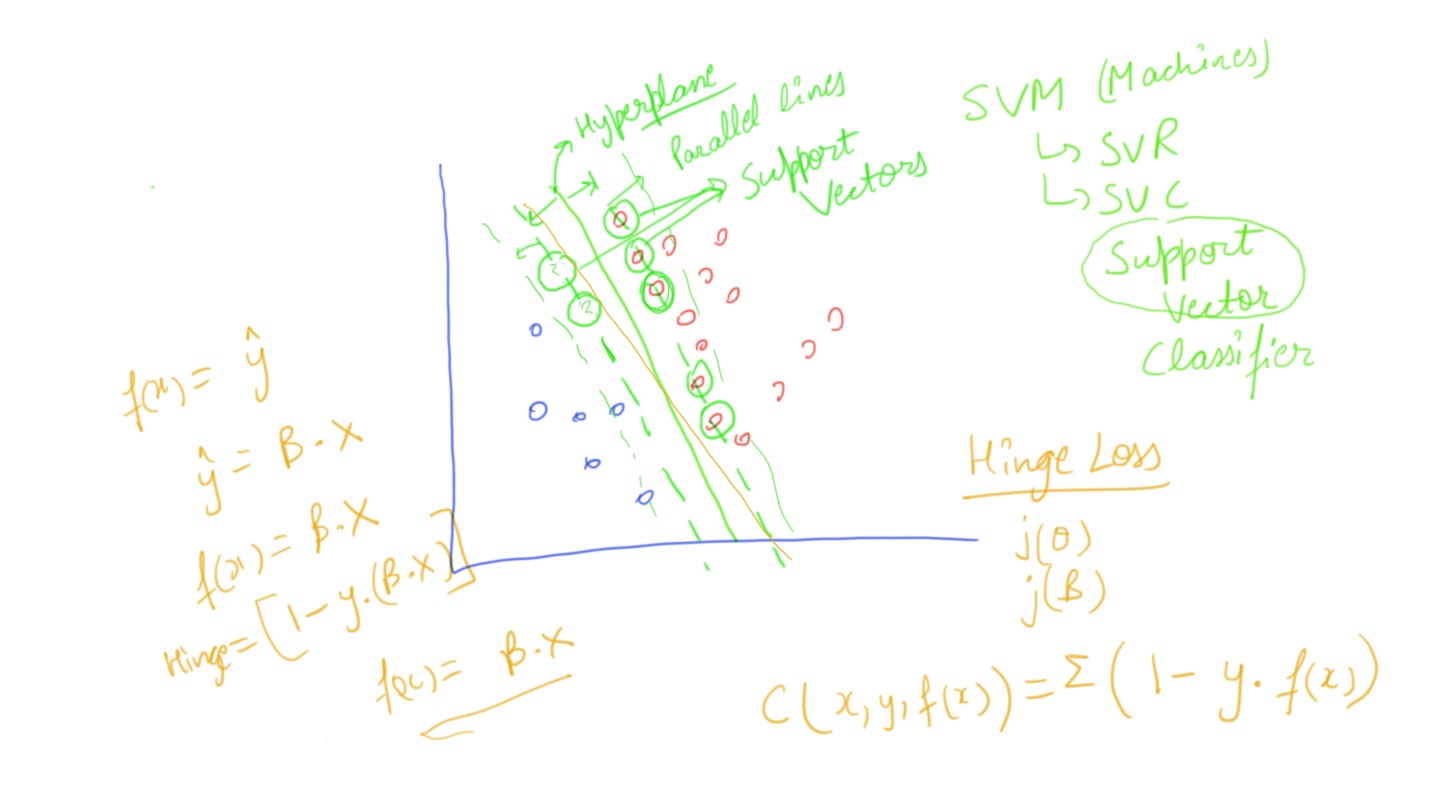 Hyperplane
Parallel lines
Support
Vectors
SVM (Machines)
↳ SVR
↳ SVC
Support
Vector
Classifier
f(x) = ŷ
ŷ = B · X
f(x) = B · X
Hinge = [1 - y.(B.X)]
f(x) = B · X
Hinge Loss
j(θ)
j(B)
C(x, y, f(x)) = Σ(1 - y. f(x))